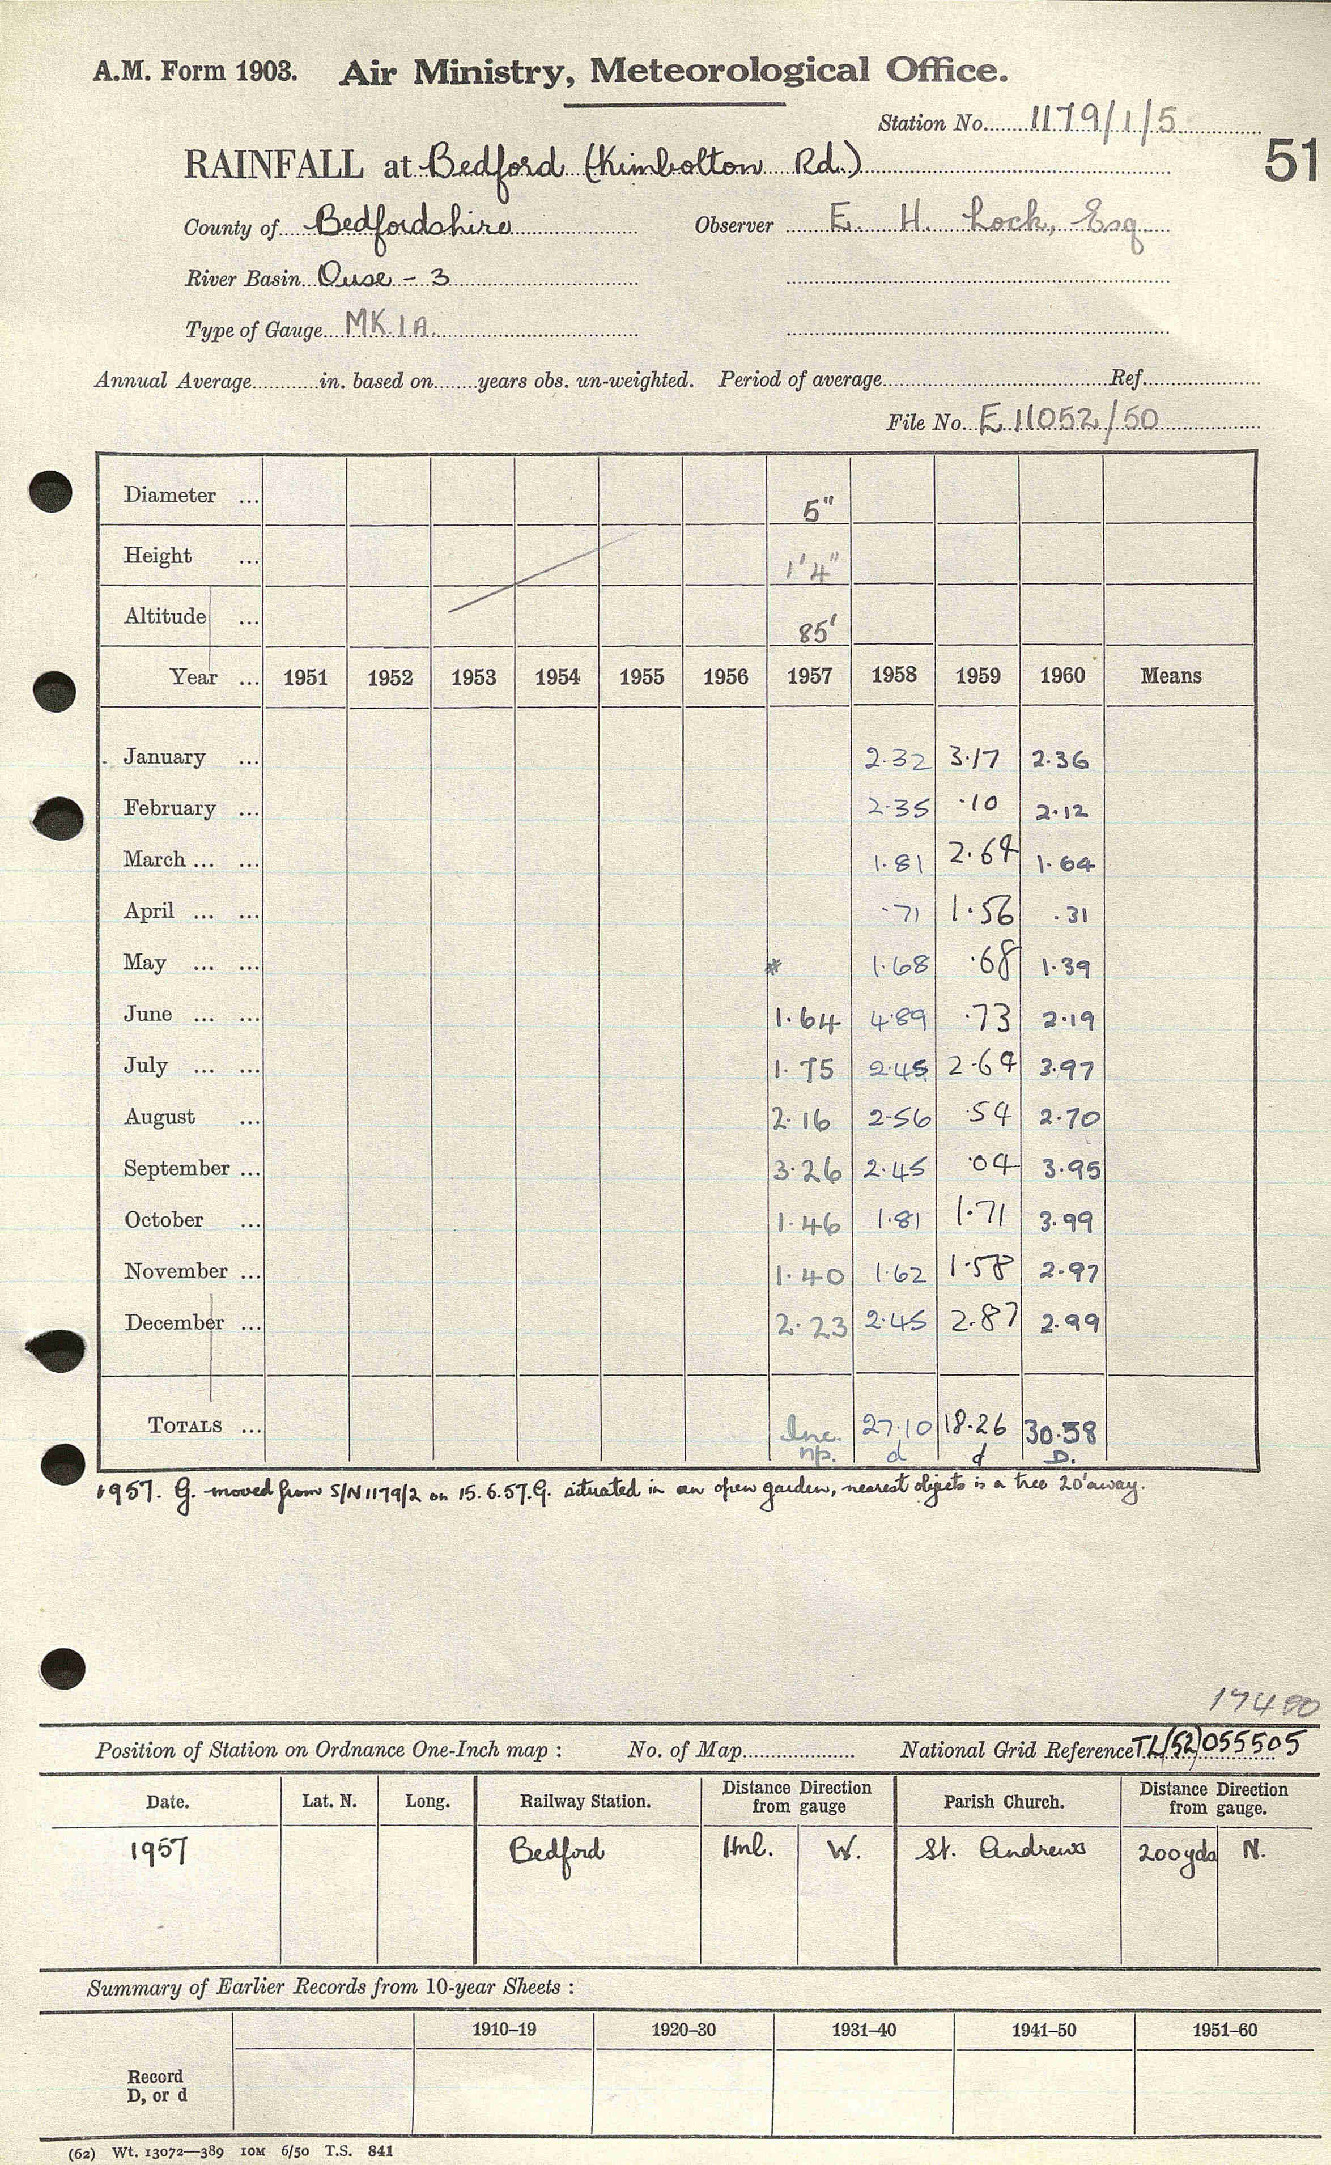 A.M. Form 1903. Air Ministry, Meteorological Office.
Station No. 1179/1/5
51
RAINFALL at Bedford (Kimbolton Rd.)
County of Bedfordshire Observer E. H. Lock, Esq
River Basin Ouse - 3
Type of Gauge MK 1A.
Annual Average............in. based on.......years obs. un-weighted. Period of average................Ref................
File No. E 11052/50
Diameter ... 5"
Height ... 1'4"
Altitude ... 85'
Year ... 1951 1952 1953 1954 1955 1956 1957 1958 1959 1960 Means
January ... 2.32 3.17 2.36
February ... 2.35 .10 2.12
March ... ... 1.81 2.64 1.64
April ... ... .71 1.56 .31
May ... ... * 1.68 .68 1.39
June ... ... 1.64 4.89 .73 2.19
July ... ... 1.75 2.45 2.64 3.97
August ... 2.16 2.56 .54 2.70
September ... 3.26 2.45 .04 3.95
October ... 1.46 1.81 1.71 3.99
November ... 1.40 1.62 1.58 2.97
December ... 2.23 2.45 2.87 2.99
TOTALS ... Inc. 27.10 18.26 30.58
np. d d D.
1957. G. moved from S/N 1179/2 on 15.6.57. G. situated in an open garden, nearest objects is a tree 20' away.
Position of Station on Ordnance One-Inch map : No. of Map................ National Grid Reference TL(52)055505
Date. Lat. N. Long. Railway Station. Distance Direction from gauge Parish Church. Distance Direction from gauge.
1957 Bedford 1ml. W. St. Andrews 200yds N.
Summary of Earlier Records from 10-year Sheets :
1910–19 1920–30 1931–40 1941–50 1951–60
Record
D, or d
(62) Wt. 13072—389 10M 6/50 T.S. 841